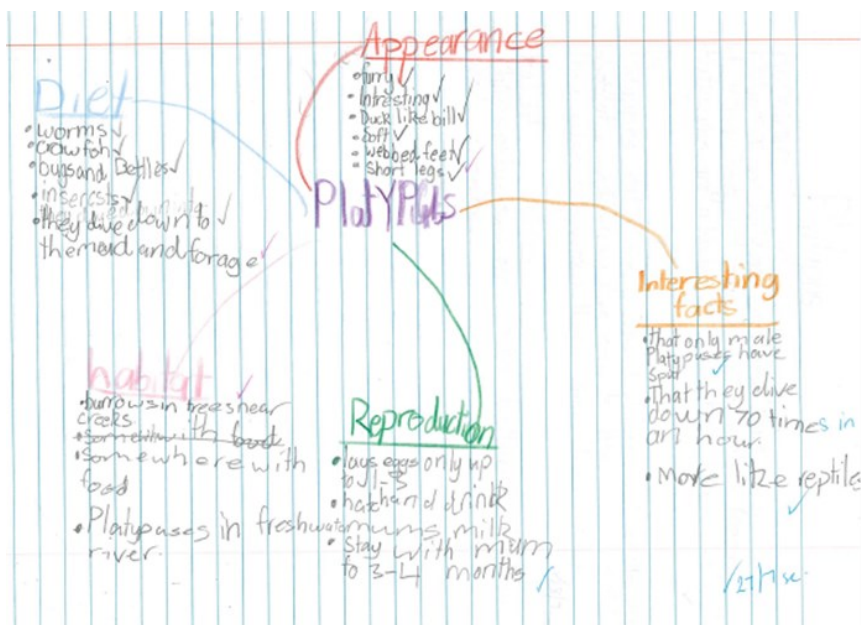 Appearance
• furry ✓
• Intresting ✓
• Duck like bill ✓
• Soft ✓
• webbed feet ✓
• Short legs ✓
Diet
• worms ✓
• crowfish ✓
• bugs and Betlles ✓
• insercsts ✓
• they dive down to ✓
the muid and forage ✓
PlatYPubs
Interesting
facts
• That only male
Platypuses have
spur ✓
• That they dive
down 70 times in
an hour.
• Move like reptile ✓
habitat ✓
• burrows in trees near
creeks
• Somewhere with
food
• Platypuses in freshwater
river.
Reproduction
• lays eggs only up
to 1-3
• hatch and drink
mums milk
• Stay with mum
to 3-4 months ✓